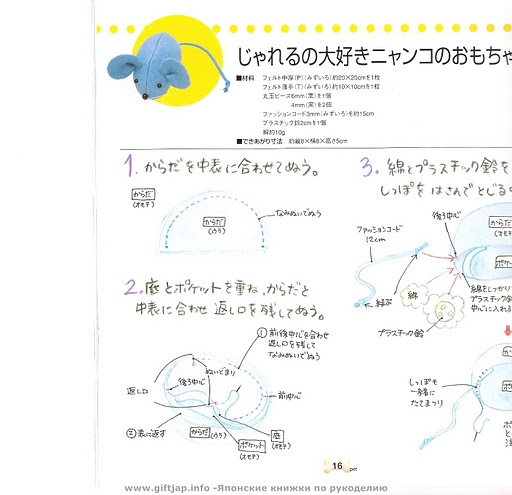 じゃれるの大好きニャンコのおもちゃ
■材料 フェルト中厚(P)(みずいろ)約20×20cmを1枚
フェルト薄手(T)(みずいろ)約10×10cmを1枚
丸玉ビーズ6mm(黒)を1個
4mm(黒)を2個
ファッションコード3mm(みずいろ)を約15cm
プラスチック鈴2cmを1個
綿約10g
■できあがり寸法 約縦8×横6×高さ5cm
1. からだを中表に合わせてぬう。
からだ
(オモテ)
からだ
(ウラ)
なみぬいでぬう
2. 底とポケットを重ね、からだと
中表に合わせ 返し口を残してぬう。
①前後中心を合わせ
返し口を残して
なみぬいでぬう
ぬいどまり
後ろ中心
返し口
前中心
②表に返す
からだ
(ウラ)
ポケット
(オモテ)
底
(オモテ)
3. 綿とプラスチック鈴を
しっぽを はさんでとじる
後ろ中心
からだ
(オモテ)
ファッションコード
12cm
ポケ
結ぶ
綿
綿をしっかり
プラスチック
中心に入れ
プラスチック鈴
しっぽも
一緒に
たてまつり
16
pet
www.giftjap.info -Японские книжки по рукоделию